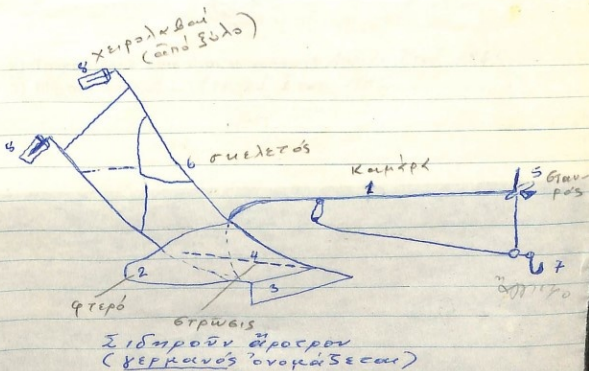 8 χειρολαβαί
(ἀπό ξύλο)
8
6 σκελετός
καμάρα
1
5
σταυ-
ρός
2
4
3
7
φτερό
στρῶσις
Σιδηροῦν ἄροτρον
(γερμανός ὀνομάζεται)